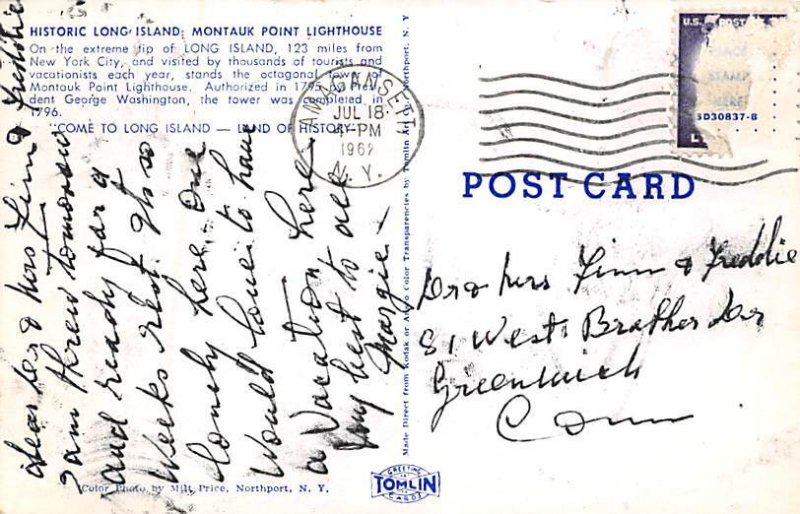 HISTORIC LONG ISLAND: MONTAUK POINT LIGHTHOUSE
On the extreme tip of LONG ISLAND, 123 miles from
New York City, and visited by thousands of tourists and
vacationists each year, stands the octagonal tower of
Montauk Point Lighthouse. Authorized in 1795 by Presi-
dent George Washington, the tower was completed in
1796.
"COME TO LONG ISLAND — LAND OF HISTORY"
Dear Dr & Mrs Finn & Freddie
I am threw tomorrow
and ready for a
Weeks rest. Its so
lonely here. One
Would love to have
a Vacation here.
My best to all
Margie
Color Photo by Milt Price, Northport, N. Y.
Made Direct from Kodak or Ansco Color Transparencies by Tomlin Art Co., Northport, N. Y.
GREETING
TOMLIN
CARDS
AMAGANSETT
JUL 18
PM
1962
N. Y.
U.S. POST
PLACE
STAMP
HERE
SD30837-B
POST CARD
Dr & Mrs Finn & Freddie
81 West Brother Dr
Greenwich
Conn